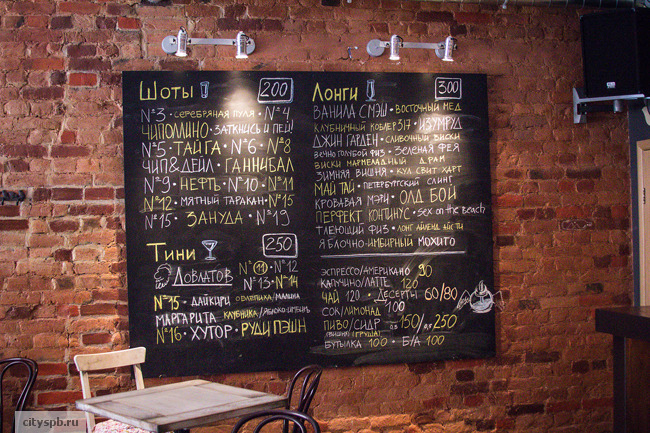 Шоты 200
№3 • СЕРЕБРЯНАЯ ПУЛЯ • №4
ЧИПОЛЛИНО • ЗАТКНИСЬ И ПЕЙ!
№5 • ТАЙГА • №6 • №8
ЧИП&ДЕЙЛ • ГАННИБАЛ
№9 • НЕФТЬ • №10 • №11
№12 • МЯТНЫЙ ТАРАКАН • №15
№15 • ЗАНУДА • №19
Тини 250
ДОВЛАТОВ №11 • №12
№13 • №14
№15 • ДАЙКИРИ ОБЛЕПИХА/МАЛИНА
МАРГАРИТА КЛУБНИКА/ЯБЛОКО-ИМБИРЬ
№16 • ХУТОР • РУДИ ПЭШН
Лонги 300
ВАНИЛА СМЭШ • ВОСТОЧНЫЙ МЕД
КЛУБНИЧНЫЙ КОБЛЕР 317 • ИЗУМРУД
ДЖИН ГАРДЕН • СЛИВОЧНЫЙ ВИСКИ
ВЕЧНО ГОЛУБОЙ ФИЗ • ЗЕЛЕНАЯ ФЕЯ
ВИСКИ МАРМЕЛАДНЫЙ ДРАМ
ЗИМНЯЯ ВИШНЯ • КУЛ СВИТ ХАРТ
МАЙ ТАЙ • ПЕТЕРБУРГСКИЙ СЛИНГ
КРОВАВАЯ МЭРИ • ОЛД БОЙ
ПЕРФЕКТ КОЛЛИНС • SEX ON THE BEACH
ТЛЕЮЩИЙ ФИЗ • ЛОНГ АЙЛЕНД АЙСТИ
ЯБЛОЧНО-ИМБИРНЫЙ МОХИТО
ЭСПРЕССО/АМЕРИКАНО 90
КАПУЧИНО/ЛАТТЕ 120
ЧАЙ 120 • ДЕСЕРТЫ 60/80
СОК/ЛИМОНАД 100
ПИВО/СИДР 0,3 150/0,5 250
(ВИШНЯ/ГРУША)
БУТЫЛКА 100 • Б/А 100
cityspb.ru